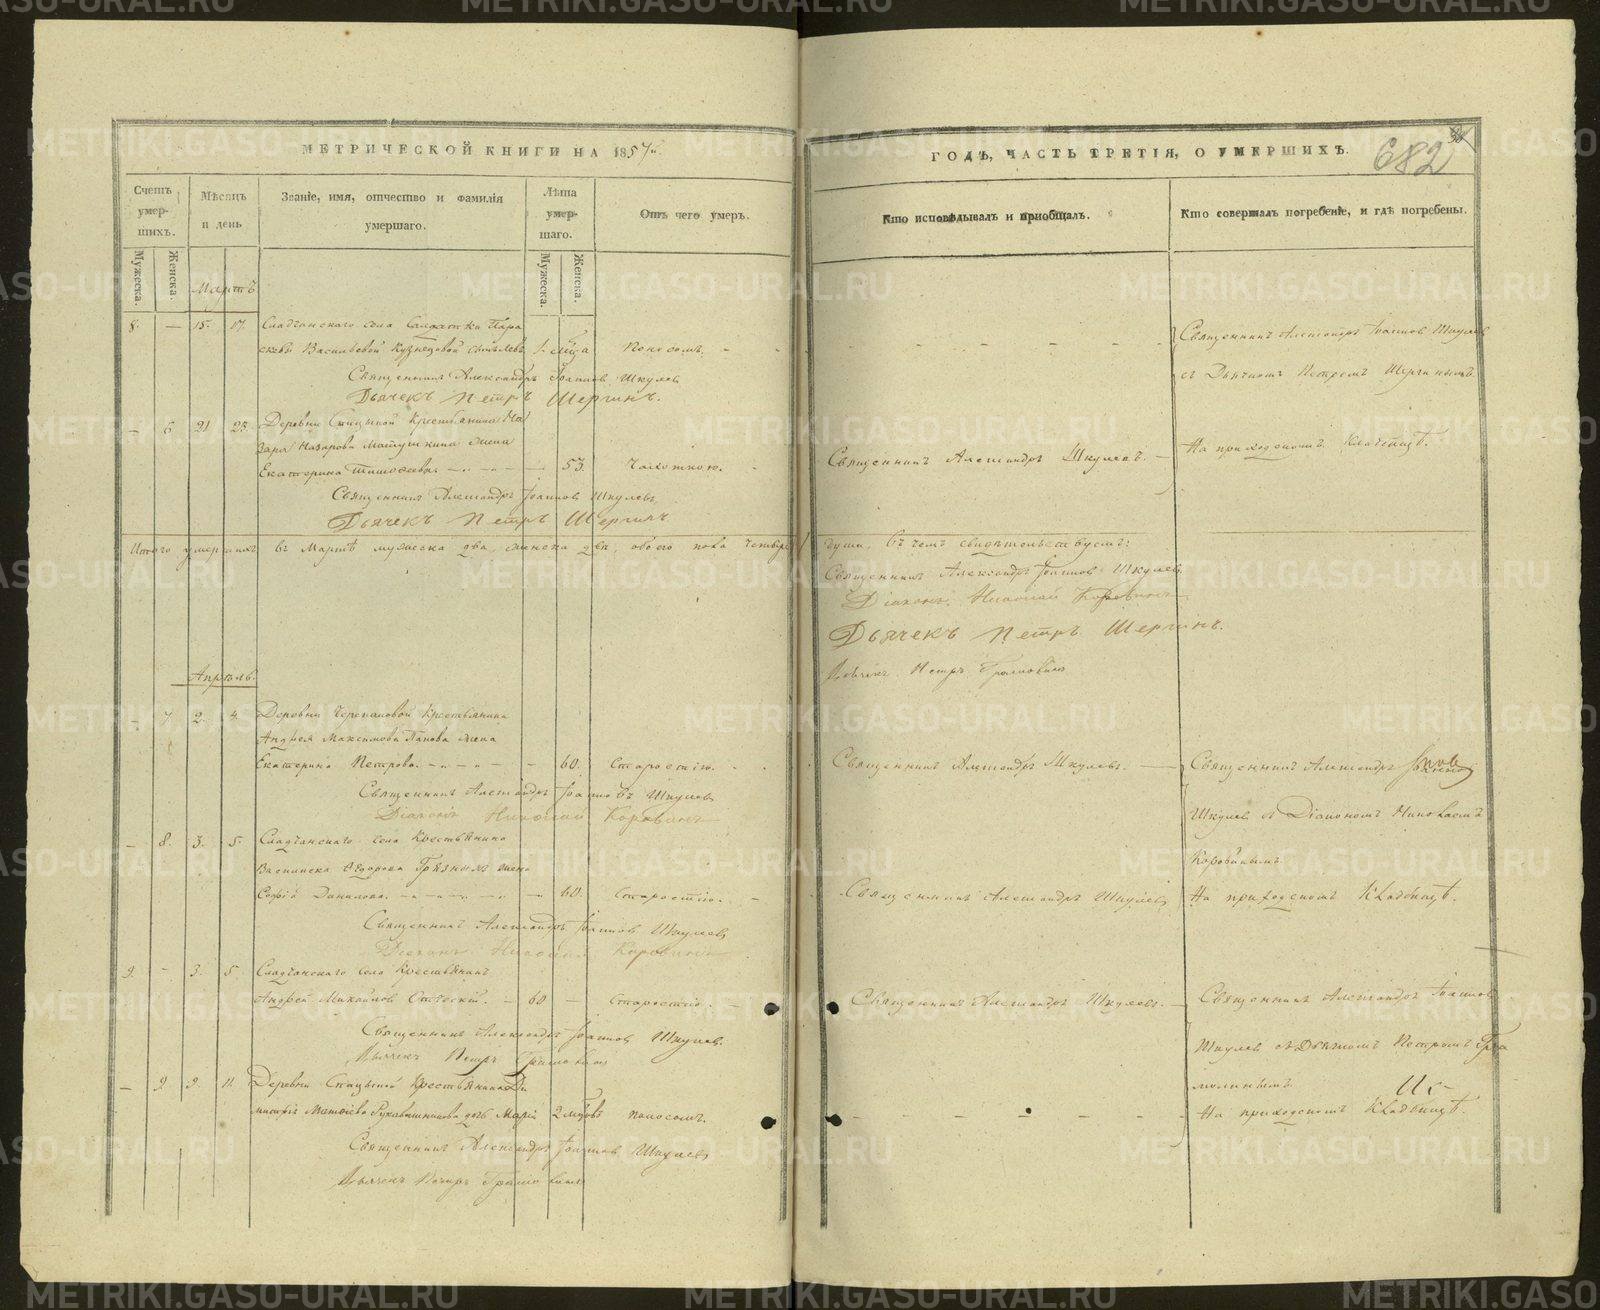 МЕТРИЧЕСКОЙ КНИГИ НА 1857й
Счетъ умер- шихъ.
Мѣсяцъ и день
Званіе, имя, отчество и фамилія умершаго.
Лѣта умер- шаго.
Отъ чего умеръ.
Мужеска.
Женска.
Мужеска.
Женска.
Мартъ
8. — 15. 17. Сладчанскаго села Солдатки Пара
скевы Васильевой Кузнецовой сынъ Левъ 1. Поносомъ. - -
Священникъ Александръ Іоанновъ Шкулевъ
Дьячекъ Петръ Шергинъ.
— 6 21 23. Деревни Спицыной Крестьянина На
зара Назарова Матушкина жена
Екатерина — 53. Чахоткою. -
Священникъ Александръ Іоанновъ Шкулевъ
Дьячекъ Петръ Шергинъ
Итого умершихъ въ Мартѣ мужеска два, женска двѣ, обоего пола четыре
Апрѣль.
— 7 2. 4. Деревни Черепановой Крестьянина
Андрея Максимова Панова жена
Екатерина Петрова. — 60. Старостію.
Священникъ Александръ Іоанновъ Шкулевъ
Діаконъ Николай Коровинъ
— 8. 3. 5. Сладчанскаго села Крестьянина
Егорова жена
Софія Данилова. — 60. Старостію. -
Священникъ Александръ Іоанновъ Шкулевъ
Діаконъ Николай Коровинъ
9. - 3. 5 Сладчанскаго села Крестьянинъ
Андрей Михайловъ — 60 — Старостію. —
Священникъ Александръ Іоанновъ Шкулевъ.
Дьячекъ Петръ
— 9. 9. 11. Деревни Спицыной Крестьянина Ди
митрія Рукавишникова дочь Марія 2 Поносомъ.
Священникъ Александръ Іоанновъ Шкулевъ
Дьячекъ Петръ
ГОДЪ, ЧАСТЬ ТРЕТІЯ, О УМЕРШИХЪ.
682
Кто исповѣдывалъ и пріобщалъ.
Кто совершалъ погребеніе, и гдѣ погребены.
Священникъ Александръ Іоанновъ Шкулевъ
съ Дьячкомъ Петромъ Шергинымъ.
Священникъ Александръ Шкулевъ. —
На приходскомъ Кладбищѣ.
души. Въ чемъ свидѣтельствуемъ:
Священникъ Александръ Іоанновъ Шкулевъ
Діаконъ Николай Коровинъ
Дьячекъ Петръ Шергинъ.
Дьячекъ Петръ
Священникъ Александръ Шкулевъ. —
Священникъ Александръ
Шкулевъ съ Діакономъ Николаемъ
Коровинымъ
Священникъ Александръ Шкулевъ
На приходскомъ Кладбищѣ.
Священникъ Александръ Шкулевъ. —
Священникъ Александръ Іоанновъ
Шкулевъ съ Дьячкомъ Петромъ
На приходскомъ Кладбищѣ.
METRIKI.GASO-URAL.RU